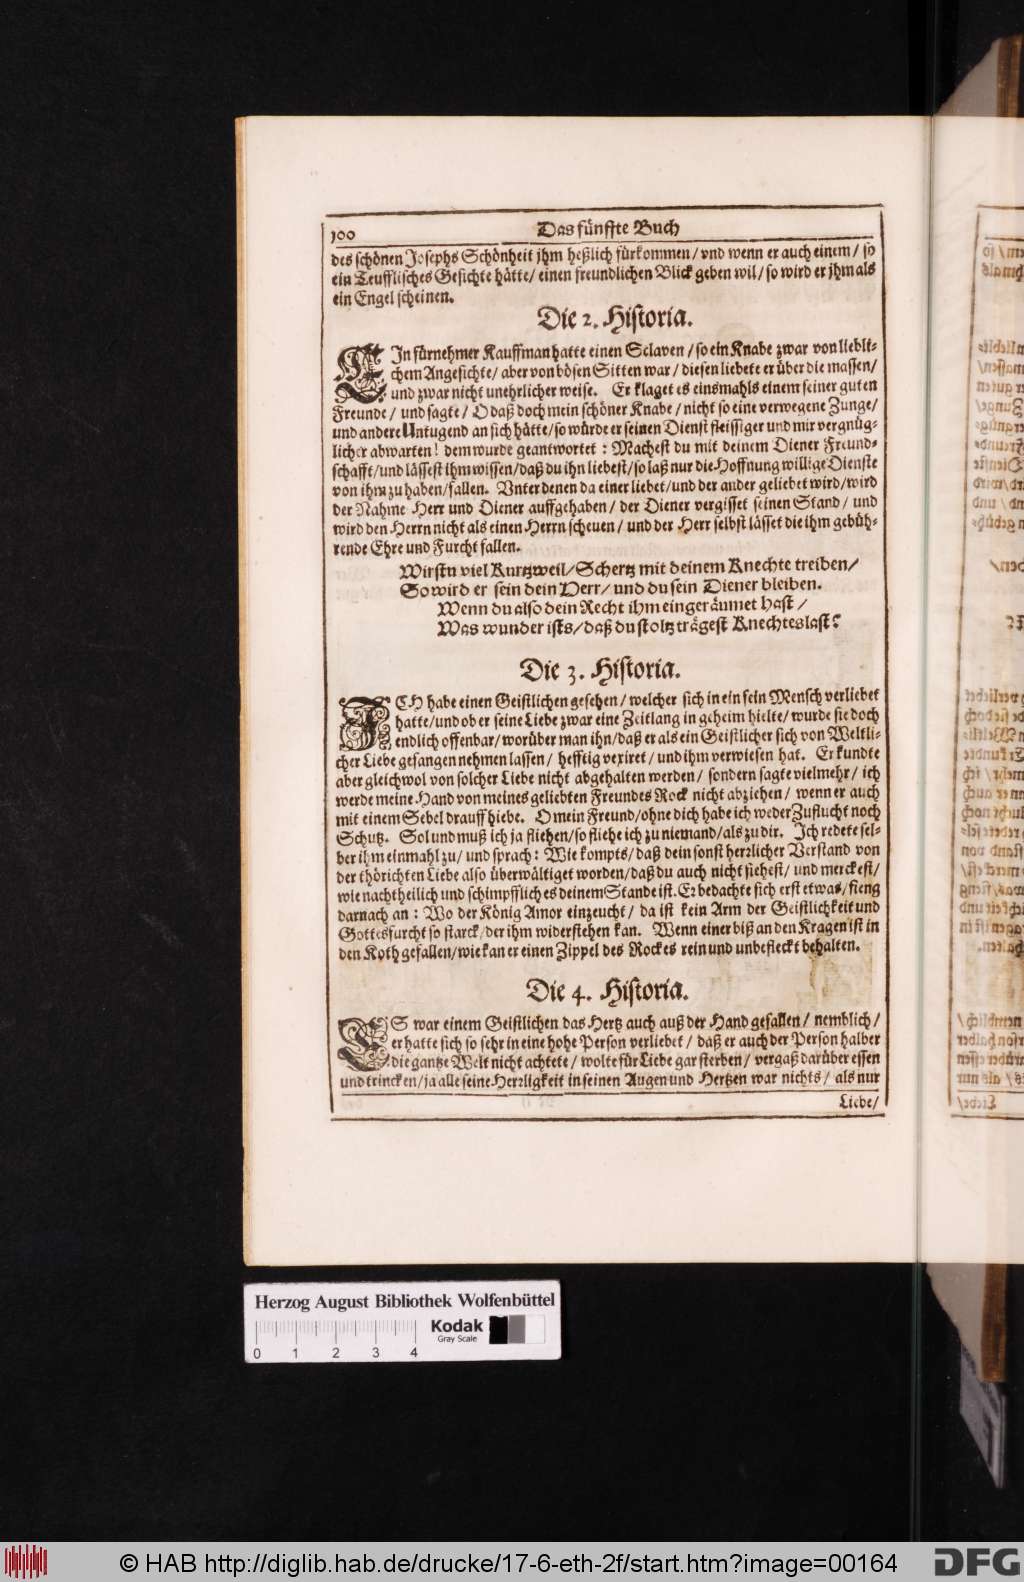 100 Das fünffte Buch
des schönen Josephs Schönheit jhm heßlich fürkommen / vnd wenn er auch einem / so
ein Teufflisches Gesichte hätte / einen freundlichen Blick geben wil / so wird er jhm als
ein Engel scheinen.
Die 2. Historia.
EIn fürnehmer Kauffman hatte einen Sclaven / so ein Knabe zwar von liebli-
chem Angesichte / aber von bösen Sitten war / diesen liebete er über die massen /
und zwar nicht unehrlicher weise. Er klaget es einsmahls einem seiner guten
Freunde / und sagte / O daß doch mein schöner Knabe / nicht so eine verwegene Zunge /
und andere Untugend an sich hätte / so würde er seinen Dienst fleissiger und mir vergnüg-
licher abwarten! dem wurde geantwortet: Machest du mit deinem Diener Freund-
schafft / und lässest ihm wissen / daß du ihn liebest / so laß nur die Hoffnung willige Dienste
von ihm zu haben / fallen. Unter denen da einer liebet / und der ander geliebet wird / wird
der Nahme Herr und Diener auffgehaben / der Diener vergisset seinen Stand / und
wird den Herrn nicht als einen Herrn scheuen / und der Herr selbst lässet die ihm gebüh-
rende Ehre und Furcht fallen.
Wirstu viel Kurtzweil / Schertz mit deinem Knechte treiben /
So wird er sein dein Herr / und du sein Diener bleiben.
Wenn du also dein Recht ihm eingeräumet hast /
Was wunder ists / daß du stoltz trägest Knechtes last?
Die 3. Historia.
ICH habe einen Geistlichen gesehen / welcher sich in ein sein Mensch verliebet
hatte / und ob er seine Liebe zwar eine Zeitlang in geheim hielte / wurde sie doch
endlich offenbar / worüber man ihn / daß er als ein Geistlicher sich von Weltli-
cher Liebe gefangen nehmen lassen / hefftig vexiret / und ihm verwiesen hat. Er kundte
aber gleichwol von solcher Liebe nicht abgehalten werden / sondern sagte vielmehr / ich
werde meine Hand von meines geliebten Freundes Rock nicht abziehen / wenn er auch
mit einem Sebel drauff hiebe. O mein Freund / ohne dich habe ich weder Zuflucht noch
Schutz. Sol und muß ich ja fliehen / so fliehe ich zu niemand / als zu dir. Ich redete sel-
ber ihm einmahl zu / und sprach: Wie kompts / daß dein sonst herrlicher Verstand von
der thörichten Liebe also überwältiget worden / daß du auch nicht siehest / und merckest /
wie nachtheilich und schimpfflich es deinem Stande ist. Er bedachte sich erst etwas / fieng
darnach an: Wo der König Amor einzeucht / da ist kein Arm der Geistlichkeit und
Gottesfurcht so starck / der ihm widerstehen kan. Wenn einer biß an den Kragen ist in
den Koth gefallen / wie kan er einen Zippel des Rockes rein und unbefleckt behalten.
Die 4. Historia.
ES war einem Geistlichen das Hertz auch auß der Hand gefallen / nemblich /
er hatte sich so sehr in eine hohe Person verliebet / daß er auch der Person halber
die gantze Welt nicht achtete / wolte für Liebe gar sterben / vergaß darüber essen
und trincken / ja alle seine Herrligkeit in seinen Augen und Hertzen war nichts / als nur
Liebe /
Herzog August Bibliothek Wolfenbüttel
Kodak
Gray Scale
0 1 2 3 4
© HAB http://diglib.hab.de/drucke/17-6-eth-2f/start.htm?image=00164
DFG